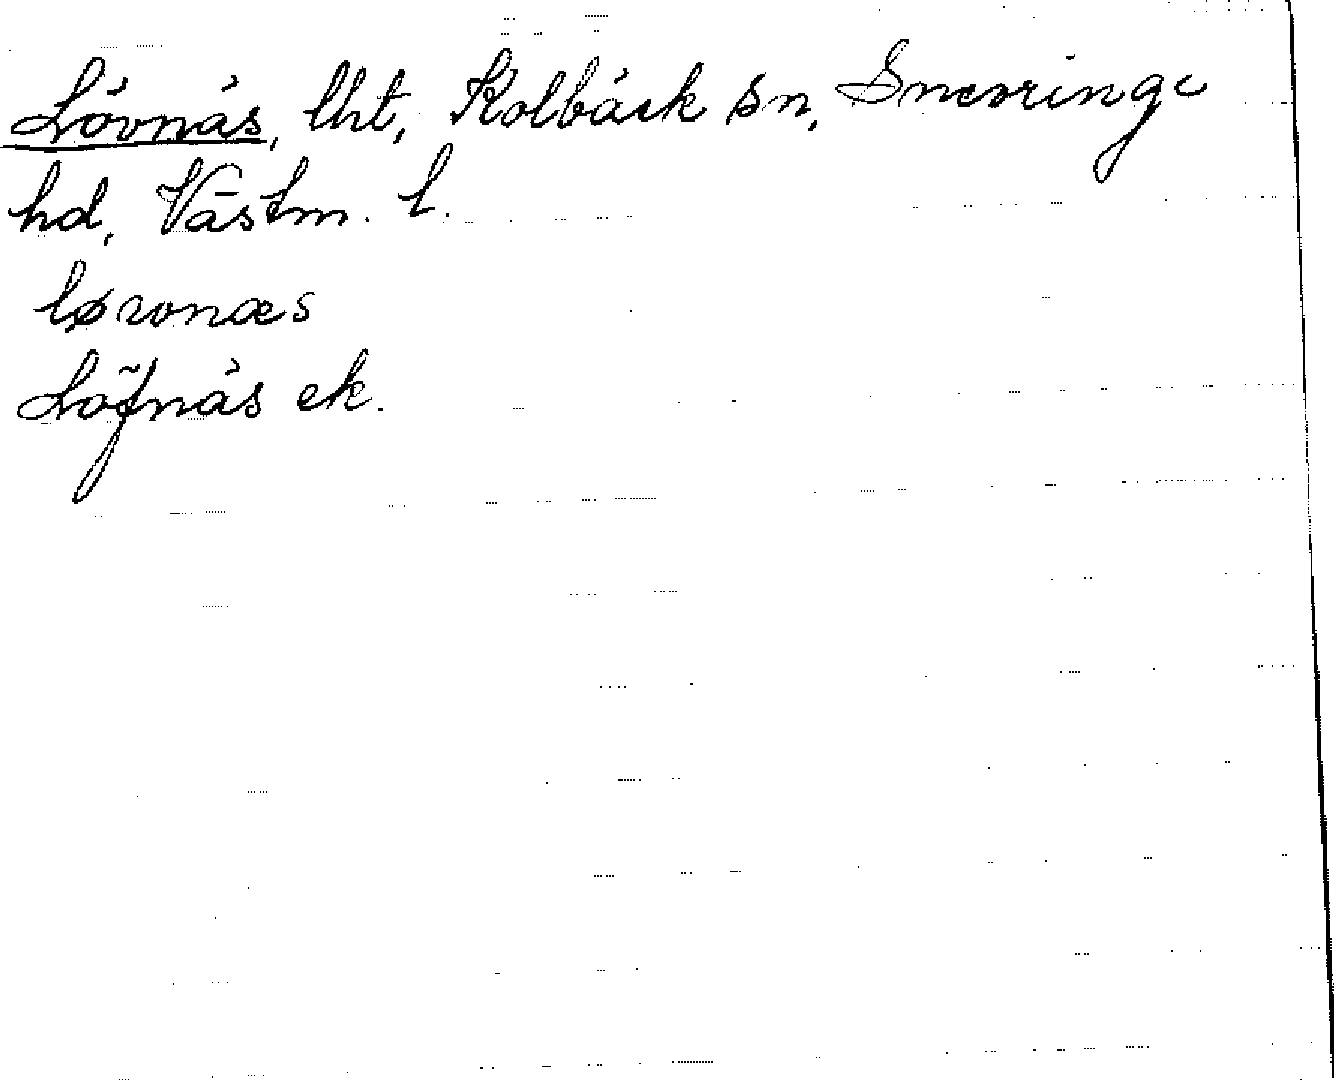 Lövnäs, lht, Kolbäck sn, Snevringe
hd, Västm. l.
løvvnæs
Löfnäs ek.